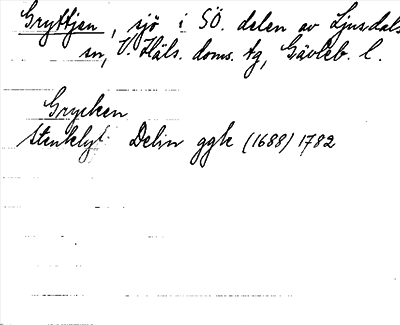 Gryttjen, sjö i SÖ. delen av Ljusdals
sn, V. Häls. doms. tg, Gävleb. l.
Grycken
Delin ggk (1688) 1782